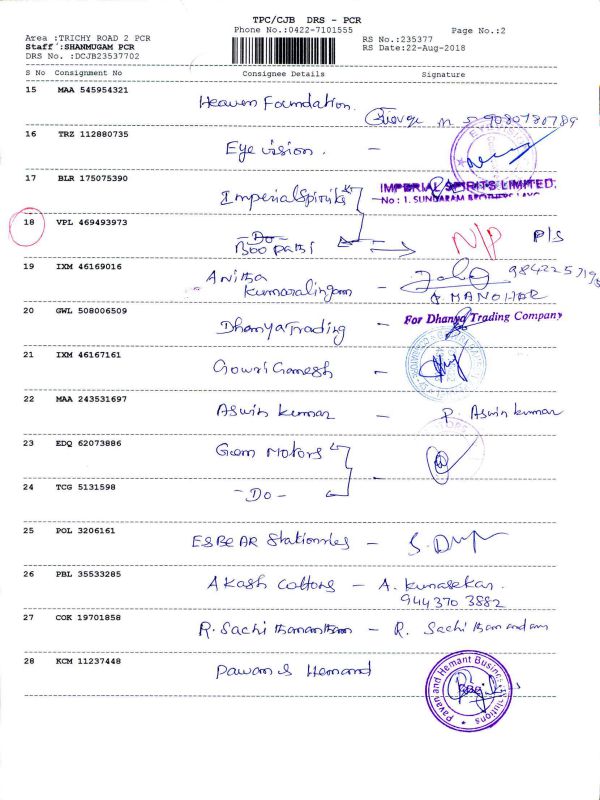 TPC/CJB DRS - PCR
Phone No.:0422-7101555 Page No.:2
Area :TRICHY ROAD 2 PCR RS No.:235377
Staff :SHANMUGAM PCR RS Date:22-Aug-2018
DRS No. :DCJB23537702
S No Consignment No Consignee Details Signature
15 MAA 545954321 Heaven Foundation.
9080780789
16 TRZ 112880735 Eye vision. -
17 BLR 175075390 Imperial Spirits IMPERIAL SPIRITS LIMITED.
No: 1. SUNDARAM BROTHERS
18 VPL 469493973 Do N/P P/S
Boopathi
19 IXM 46169016 Anitha
Kumaralingam - MANOHAR
20 GWL 508006509 Dhanya Trading - For Dhanya Trading Company
21 IXM 46167161 Gowri Ganesh -
22 MAA 243531697 Aswin Kumar - P. Aswin Kumar
23 EDQ 62073886 Gem Motors
24 TCG 5131598 - Do -
25 POL 3206161 ESBEAR Stationries -
26 PBL 35533285 Akash Cottons - A. Kunasekar.
944370 3882
27 COK 19701858 R. Sachithanantham - R. Sachithanandam
28 KCM 11237448 Pawan & Hemand Pavan and Hemant Business Solutions